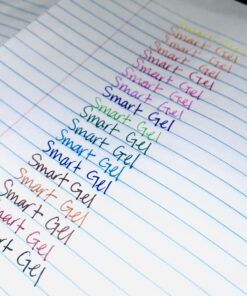 Smart Gel
Smart Gel
Smart Gel
Smart Gel
Smart Gel
Smart Gel
Smart Gel
Smart Gel
Smart Gel
Smart Gel
Smart Gel
Smart Gel
Smart Gel
Smart Gel
Smart Gel
Smart Gel
Smart Gel
Smart Gel